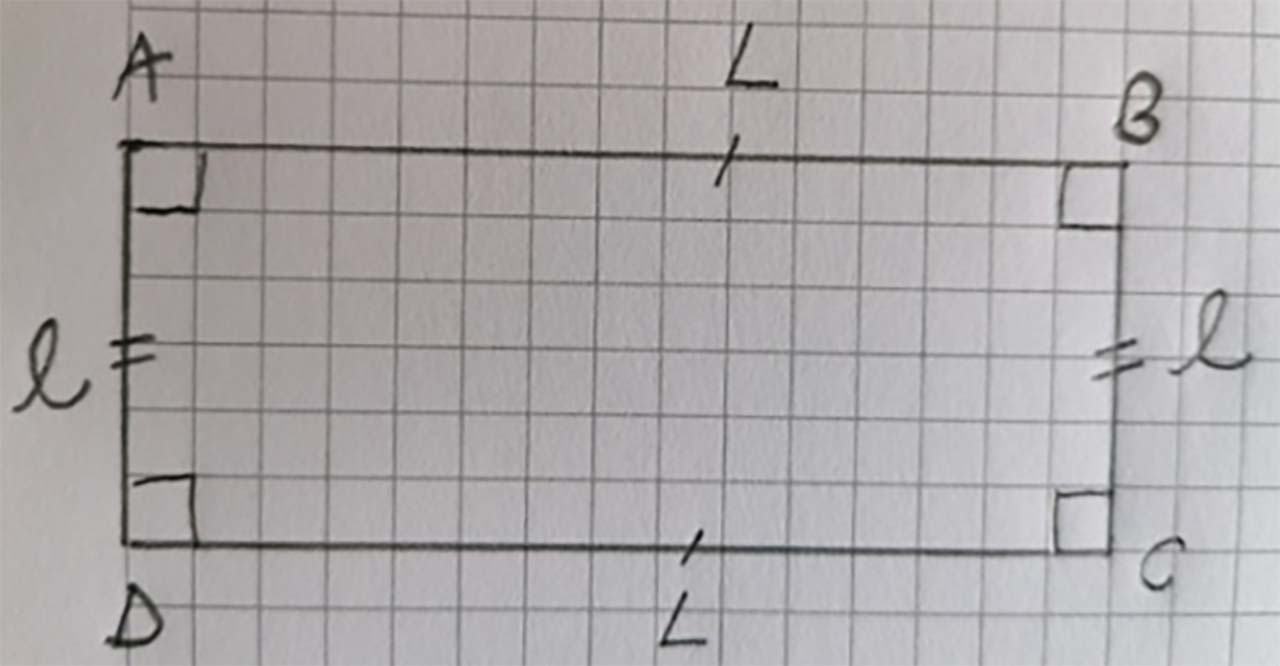 A
L
B
l
l
D
L
C